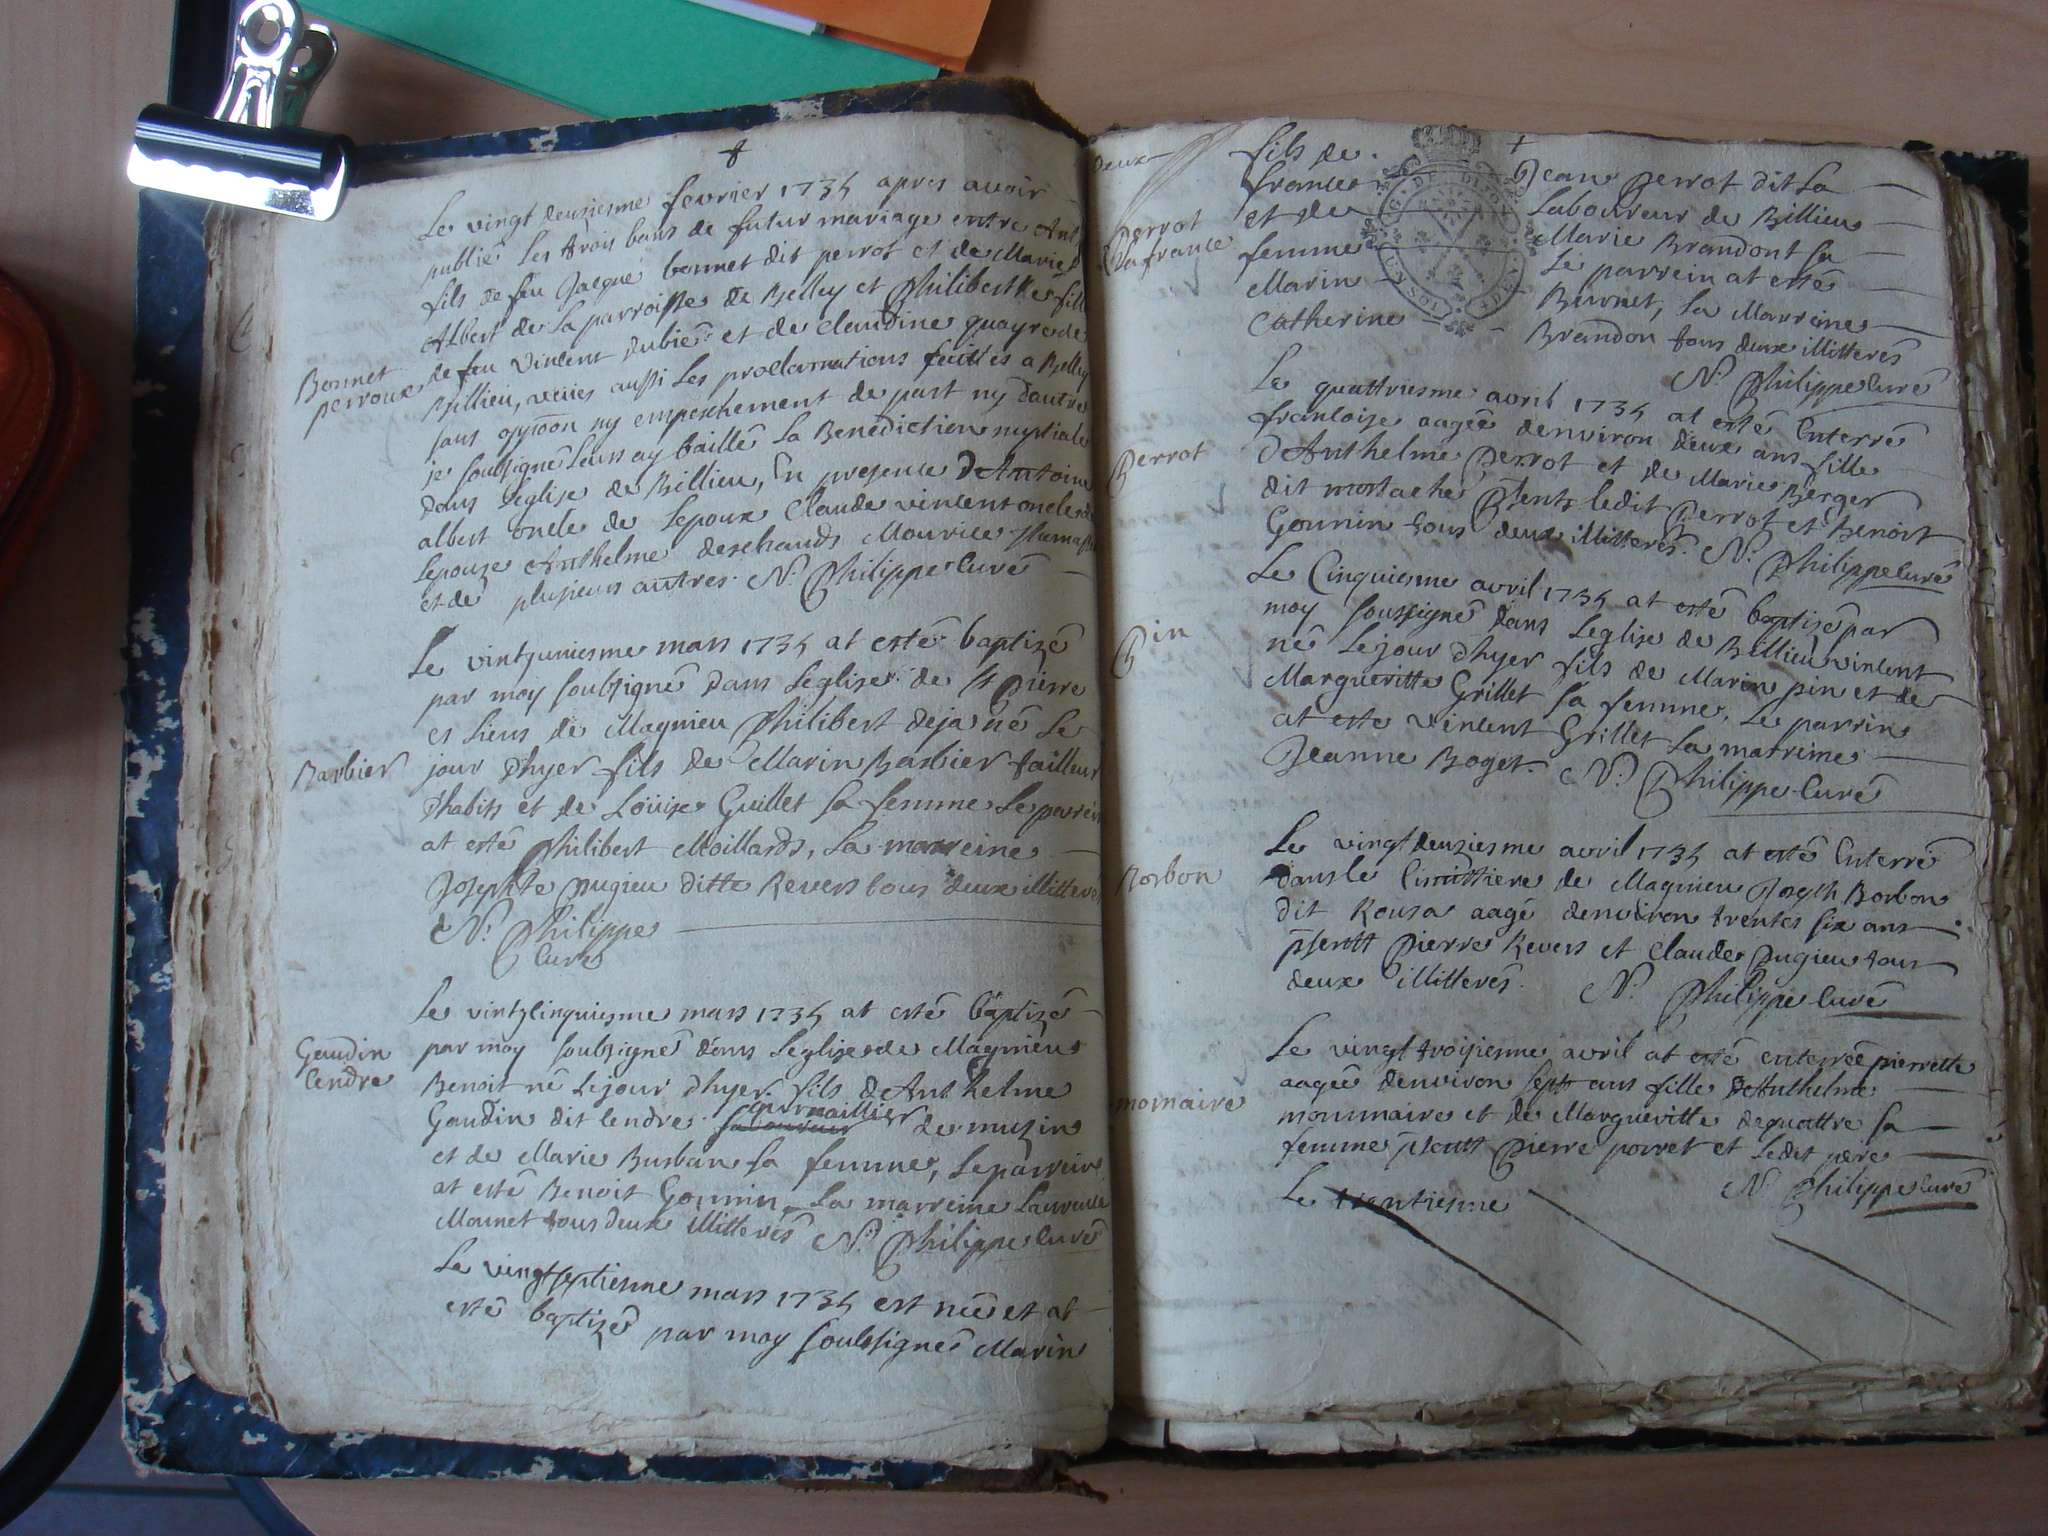 Le vingt deuziesme fevrier 1735 apres avoir
publié Les trois bans de futur mariage entre Ant
fils de feu Jacque bonnet dit perrot et de Marie
Albert de La parroisse de Belley et Philiberte fille
de feu Vincent Dubie et de Claudine
Bonnet
perroux
Billieu, veües aussi Les proclamations faittes a Belley
sans opp̃oon ny empeschement de part ny dautre
je soubsigné Leurs ay baillé La Benediction nuptiale
dans Leglise de Billieu, En presence d'Antoine
albert oncle de Lepoux Claude vincent oncle de
Lepouze Anthelme deschands Mourice
et de plusieurs autres. N. Philippe Curé
Le vintzuniesme mars 1735 at esté baptizé
par moy soubsigné dans Leglise de St pierre
es liens de Magnieu Philibert deja né Le
Barbier
jour d'hyer fils de Marin Barbier tailleur
d'habits et de Loüize Guillet sa femme Le parrein
at esté Philibert Moillard, La marreine
Josephte pugieu ditte Revers tous deux illitteres
N. Philippe
Curé
Le vintzcinquiesme mars 1735 at esté baptizé
Gaudin
Cendre
par moy soubsigné dans Leglise de Magnieu
Benoit né Lejour d'hyer fils d'Anthelme
Gaudin dit cendre laboureur de muzin
et de Marie Burban sa femme, Le parrein
at esté Benoit Gonnin, La marreine Laurence
Monnet tous deux illitterés N. Philippe Curé
Le vingtseptiesme mars 1735 est née et at
esté baptizé par moy soubssigné Marin
deux
fils de Jean perrot dit La
france Laboureur de Billieu
perrot
Lafrance
et de Marie Brandont sa
femme Le parrein at esté
Marin Burnet, La Marreine
Catherine Brandon tous deux illitterés
N. Philippe Curé
Le quattriesme avril 1735 at esté Enterré
francoise aagée denviron deux ans fille
Perrot
d'Anthelme Perrot et de Marie Berger
dit mostache p̃sents ledit Perrot et Benoist
Gonnin tous deux illitterés. N. Philippe Curé
Le Cinquiesme avril 1735 at esté baptizé par
Pin
moy soussigné dans Leglise de Billieu vincent
né Lejour d'hyer fils de Marin pin et de
Margueritte Grillet sa femme, Le parrin
at esté vincent Grillet La marreine
Jeanne Boget. N. Philippe Curé
Le vingtdeuziesme avril 1735 at esté Enterré
Borbon
dans le Cimittiere de Magnieu Joseph Borbon
dit Rousa aagé denviron trente six ans
p̃sentt Pierre Revers et Claude Pugieu tous
deux illitterés. N. Philippe Curé
Le vingt troisiesme avril at esté enterrée pierrette
aagée denviron sept ans fille d'Anthelme
mornaire
mournaire et de Margueritte dequattre sa
femme p̃sentt Pierre porret et Ledit pere
N. Philippe Curé
Le trentiesme